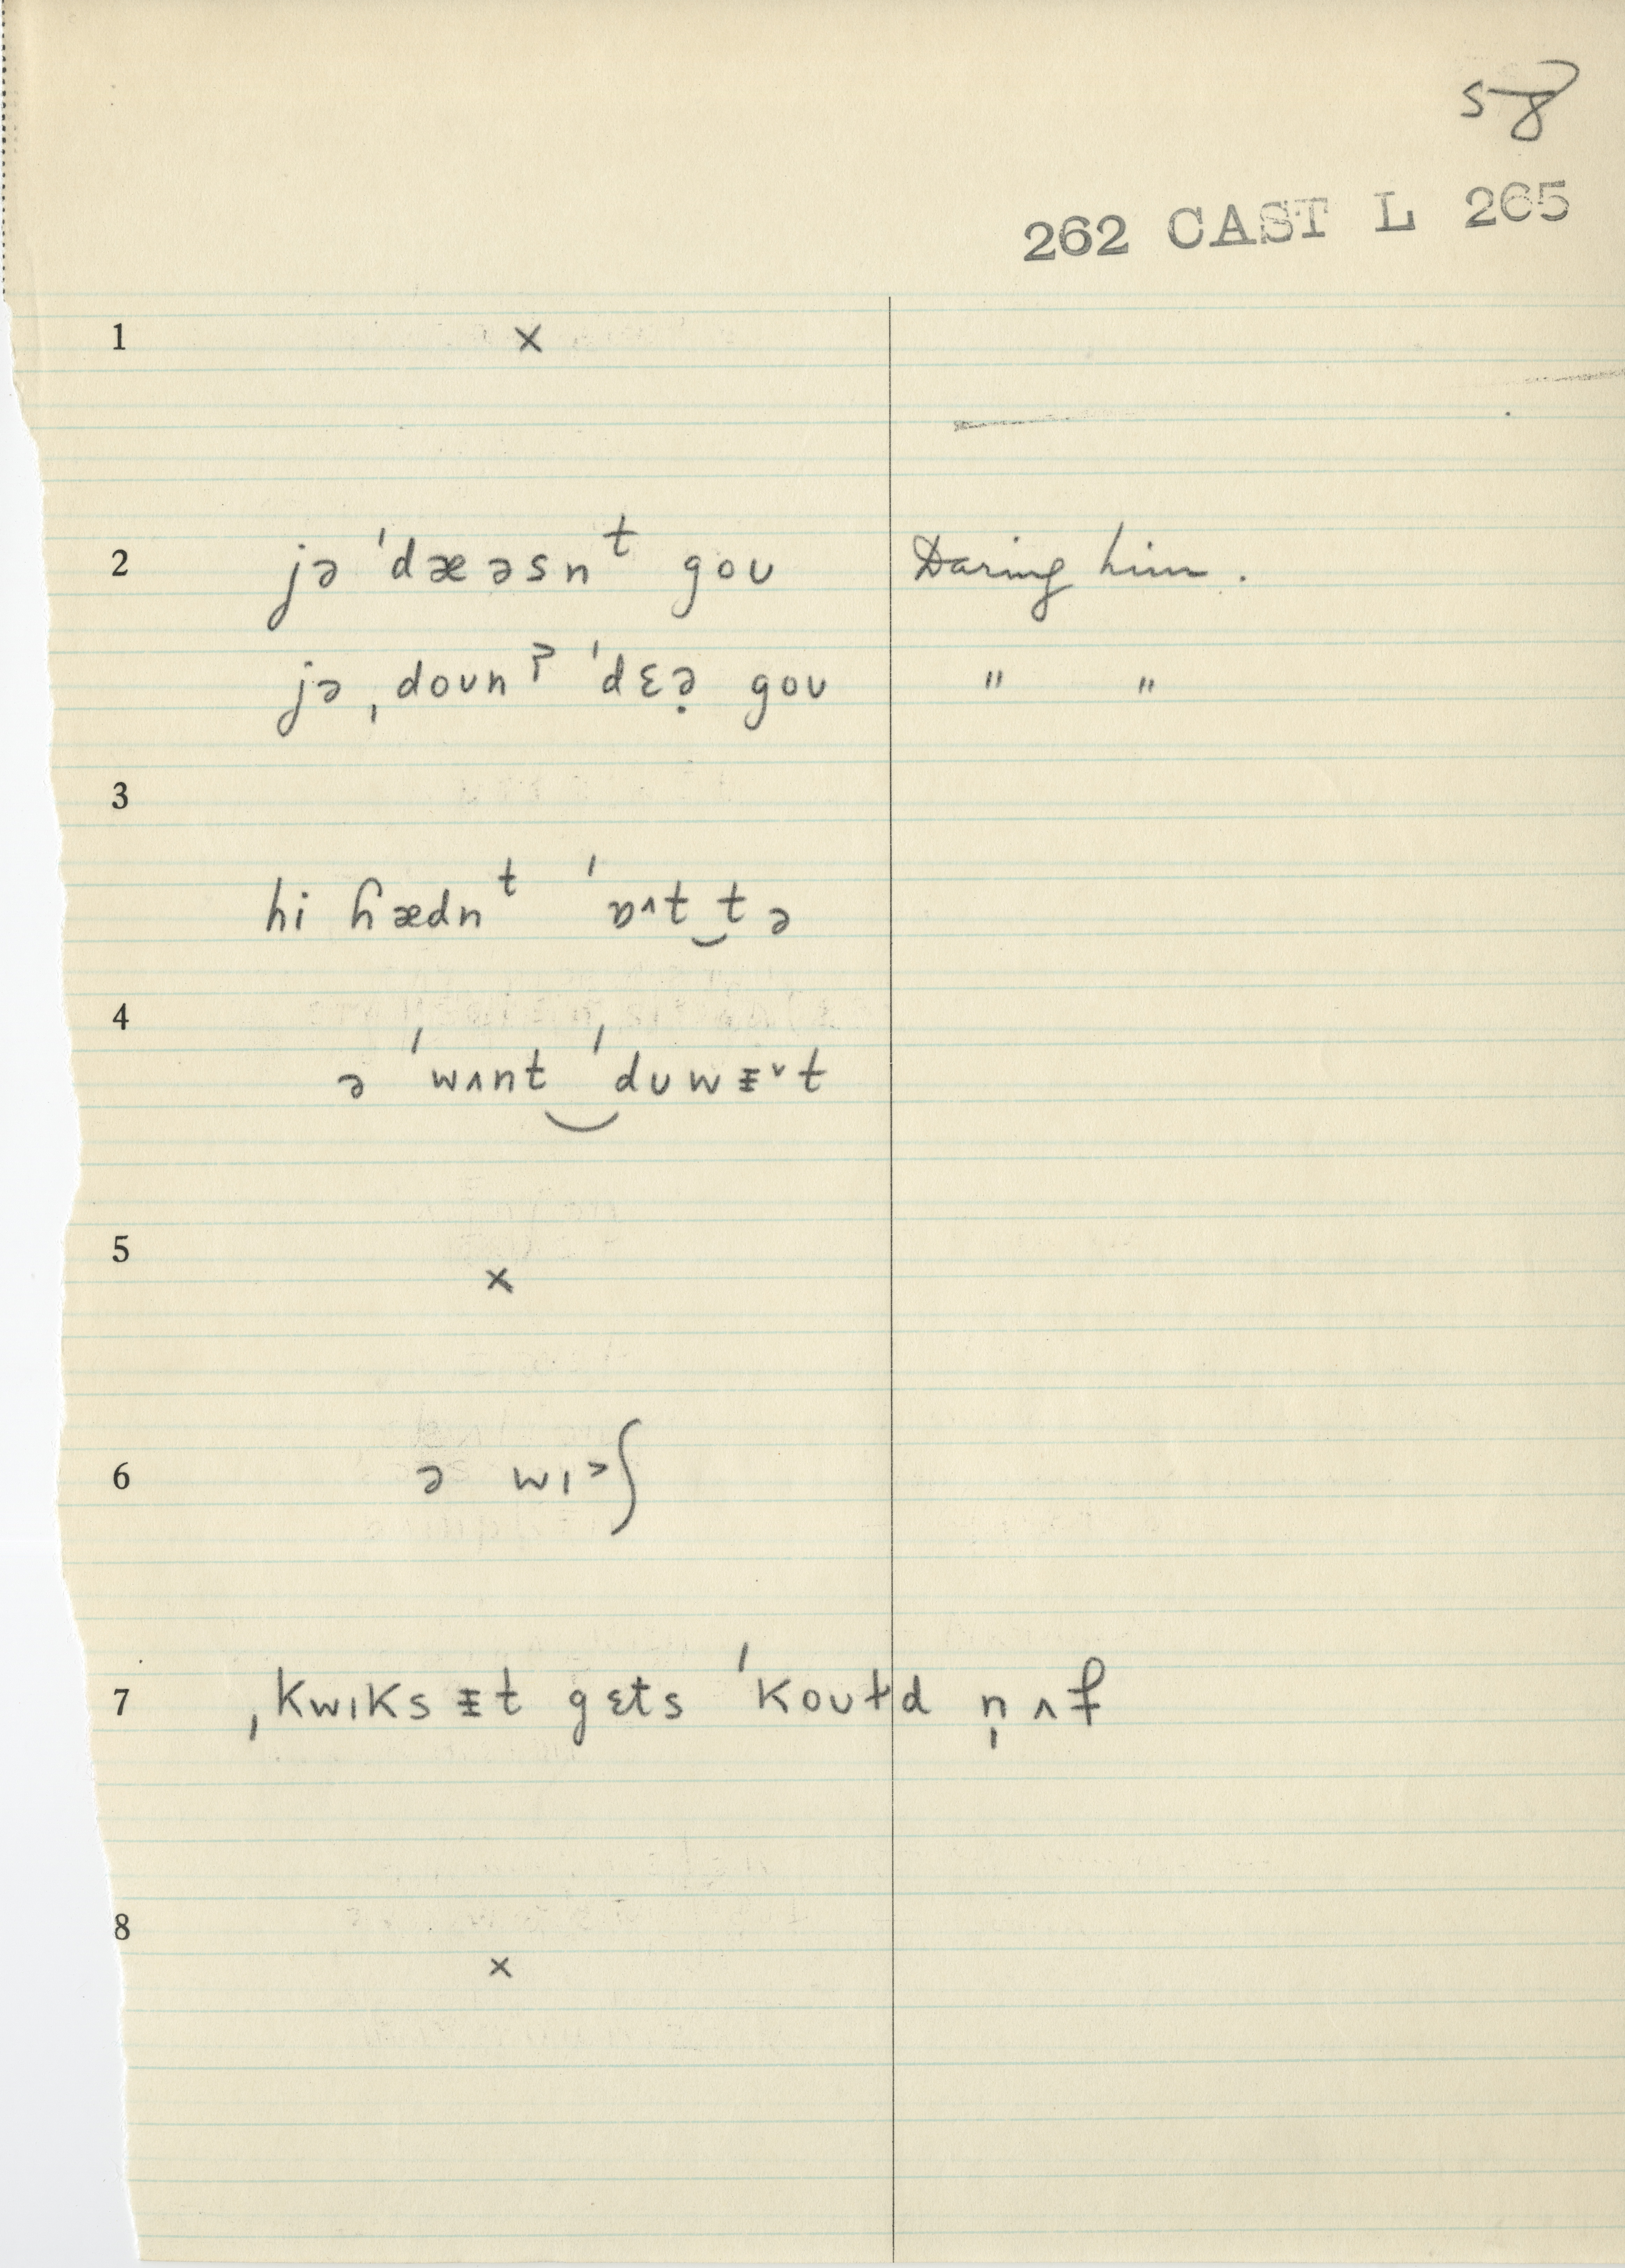 58
262 CAST L 265
1 ×
2 jə ˈdæəsnᵗ goʊ Daring him.
jə ˌdoʊnˀ ˈdɛə̣ goʊ " "
3
hi ɦædnᵗ ˈɒ˄t‿tə
4
ə ˈwʌnt‿ˈduwɪ̵˅t
5 ×
6 ə wɪ˃ʃ
7 ˌkwɪksɪ̵t gɛts ˈkoʊɫd n̩ʌf
8 ×